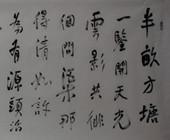 半畝方塘
一鑒開天光
雲影共徘
徊問渠那
得清如許
為有源頭活